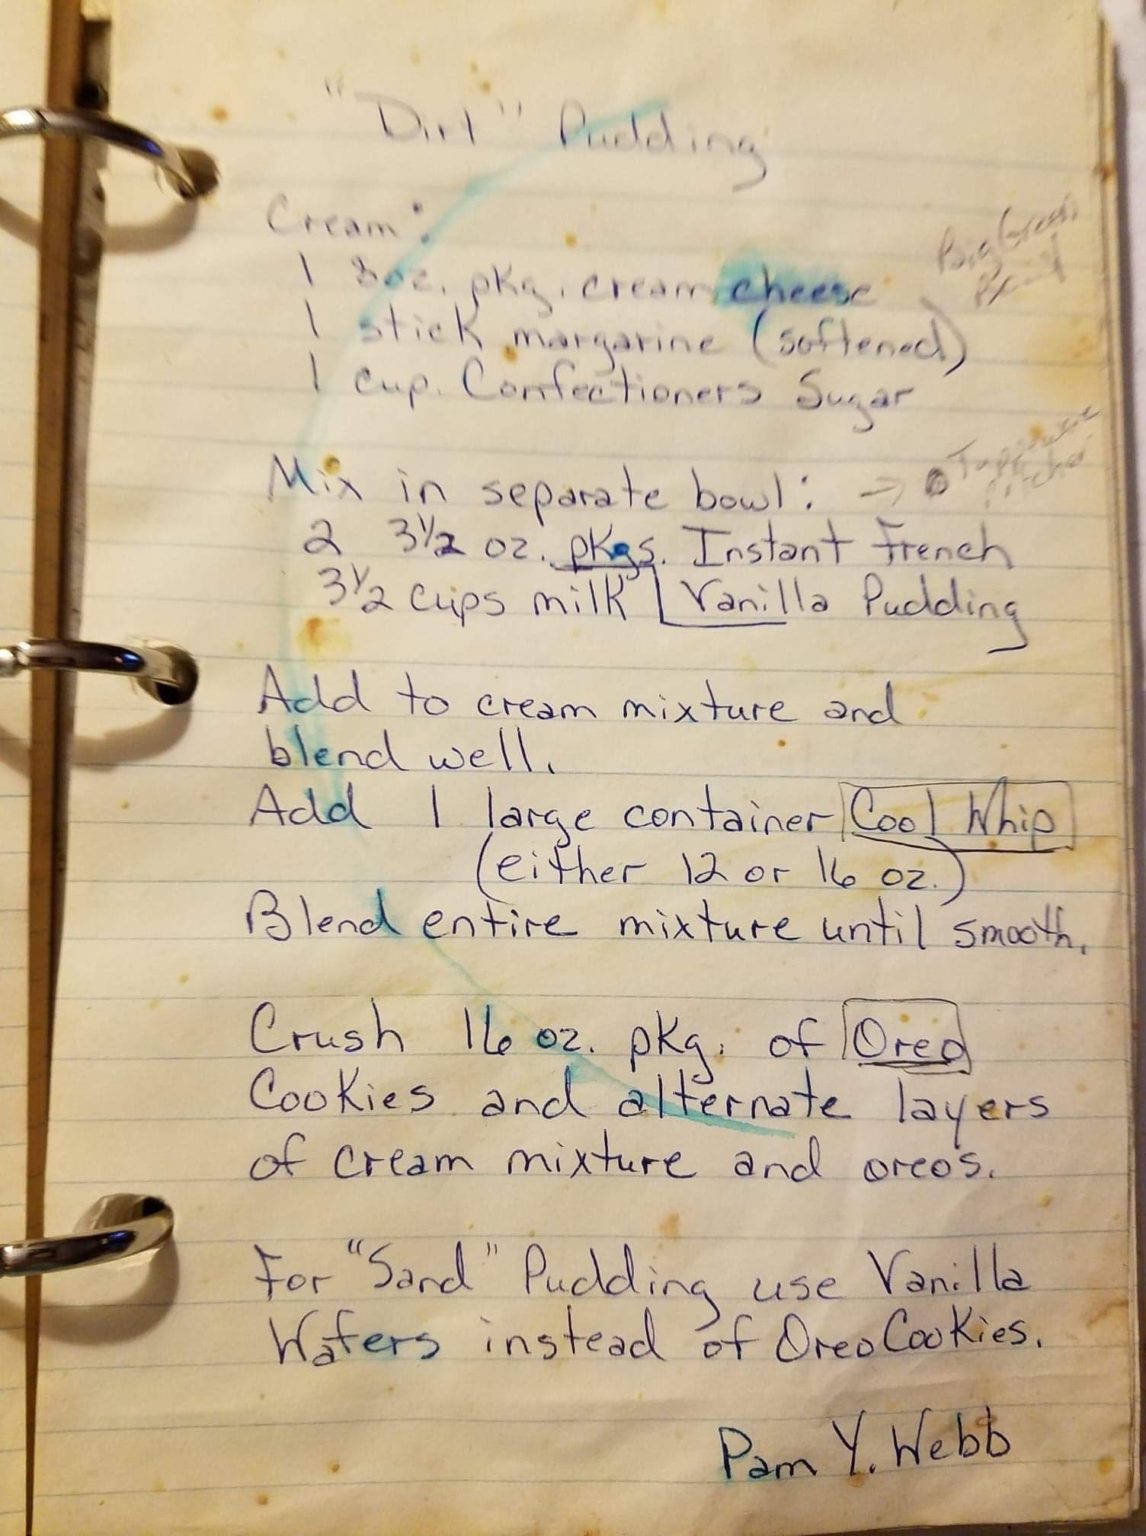 "Dirt" Pudding
Cream:
1 8oz. pkg. cream cheese
Big Green
1 stick margarine (softened)
1 cup. Confectioners Sugar
Mix in separate bowl: → Tupperware
pitcher
2 3½ oz. pkgs. Instant French
3½ cups milk Vanilla Pudding
Add to cream mixture and
blend well.
Add 1 large container Cool Whip
(either 12 or 16 oz.)
Blend entire mixture until smooth.
Crush 16 oz. pkg. of Oreo
Cookies and alternate layers
of cream mixture and oreos.
For "Sand" Pudding use Vanilla
Wafers instead of Oreo Cookies.
Pam Y. Webb